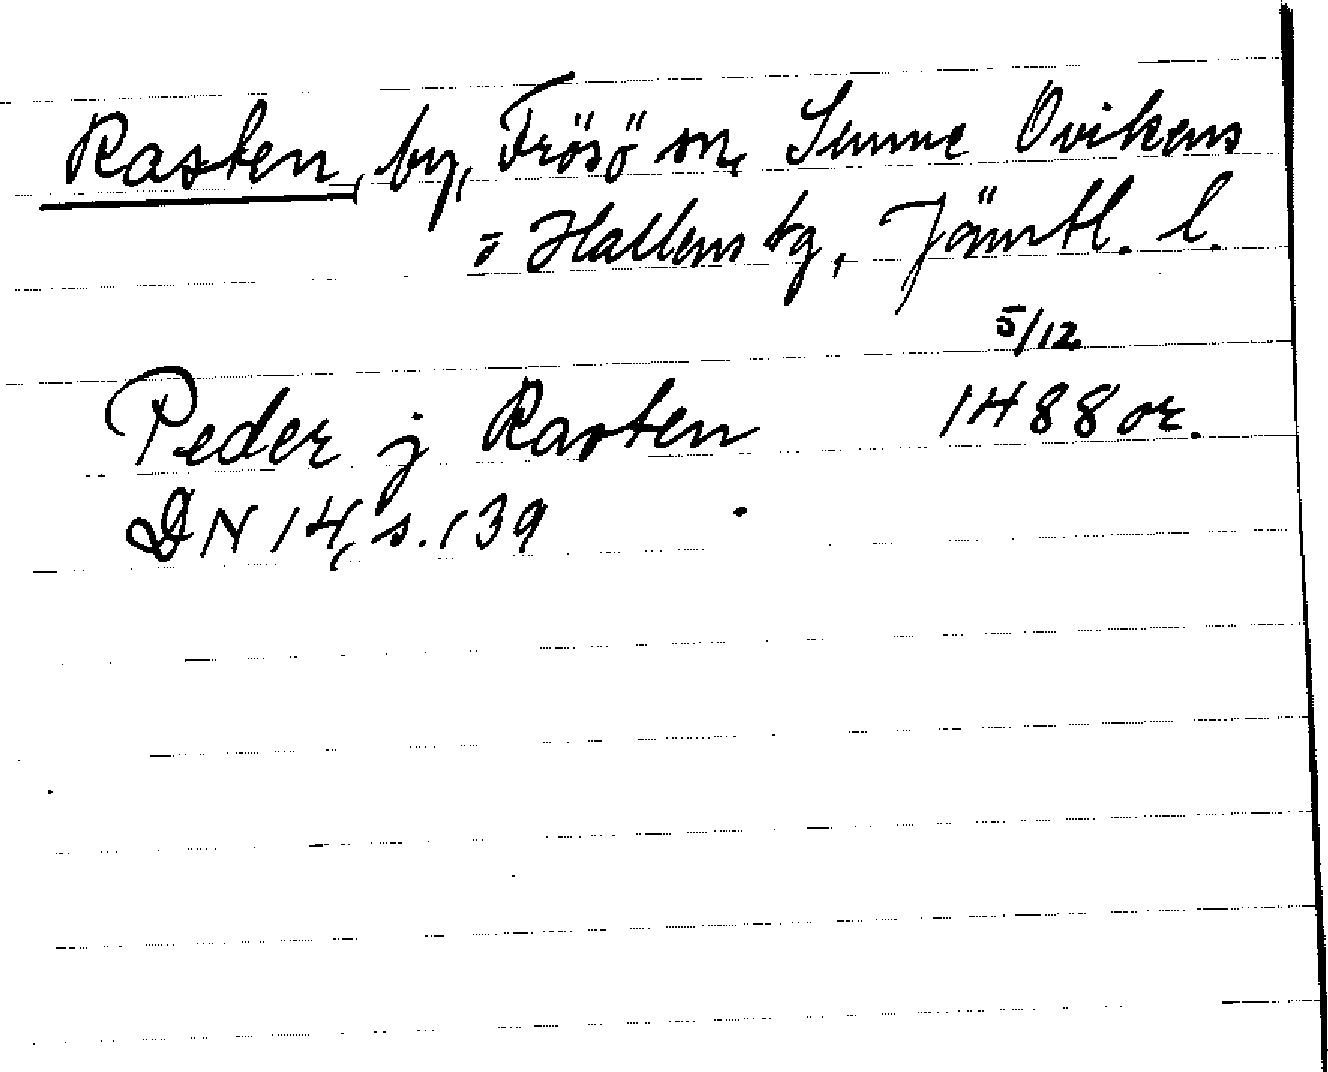 Rasten, by, Frösö sn, Sunne Ovikens
o Hallens tg, Jämtl. l.
5/12
Peder j Rasten 1488 or.
DN 14, s. 139